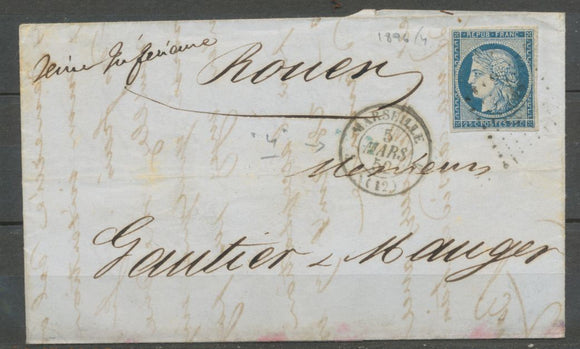 1896/4
REPUB. FRANC.
25 C. POSTES 25 C.
Seine Inférieure
Rouen
MARSEILLE
5
MARS
(12)
Messieurs
Gautier & Mauger